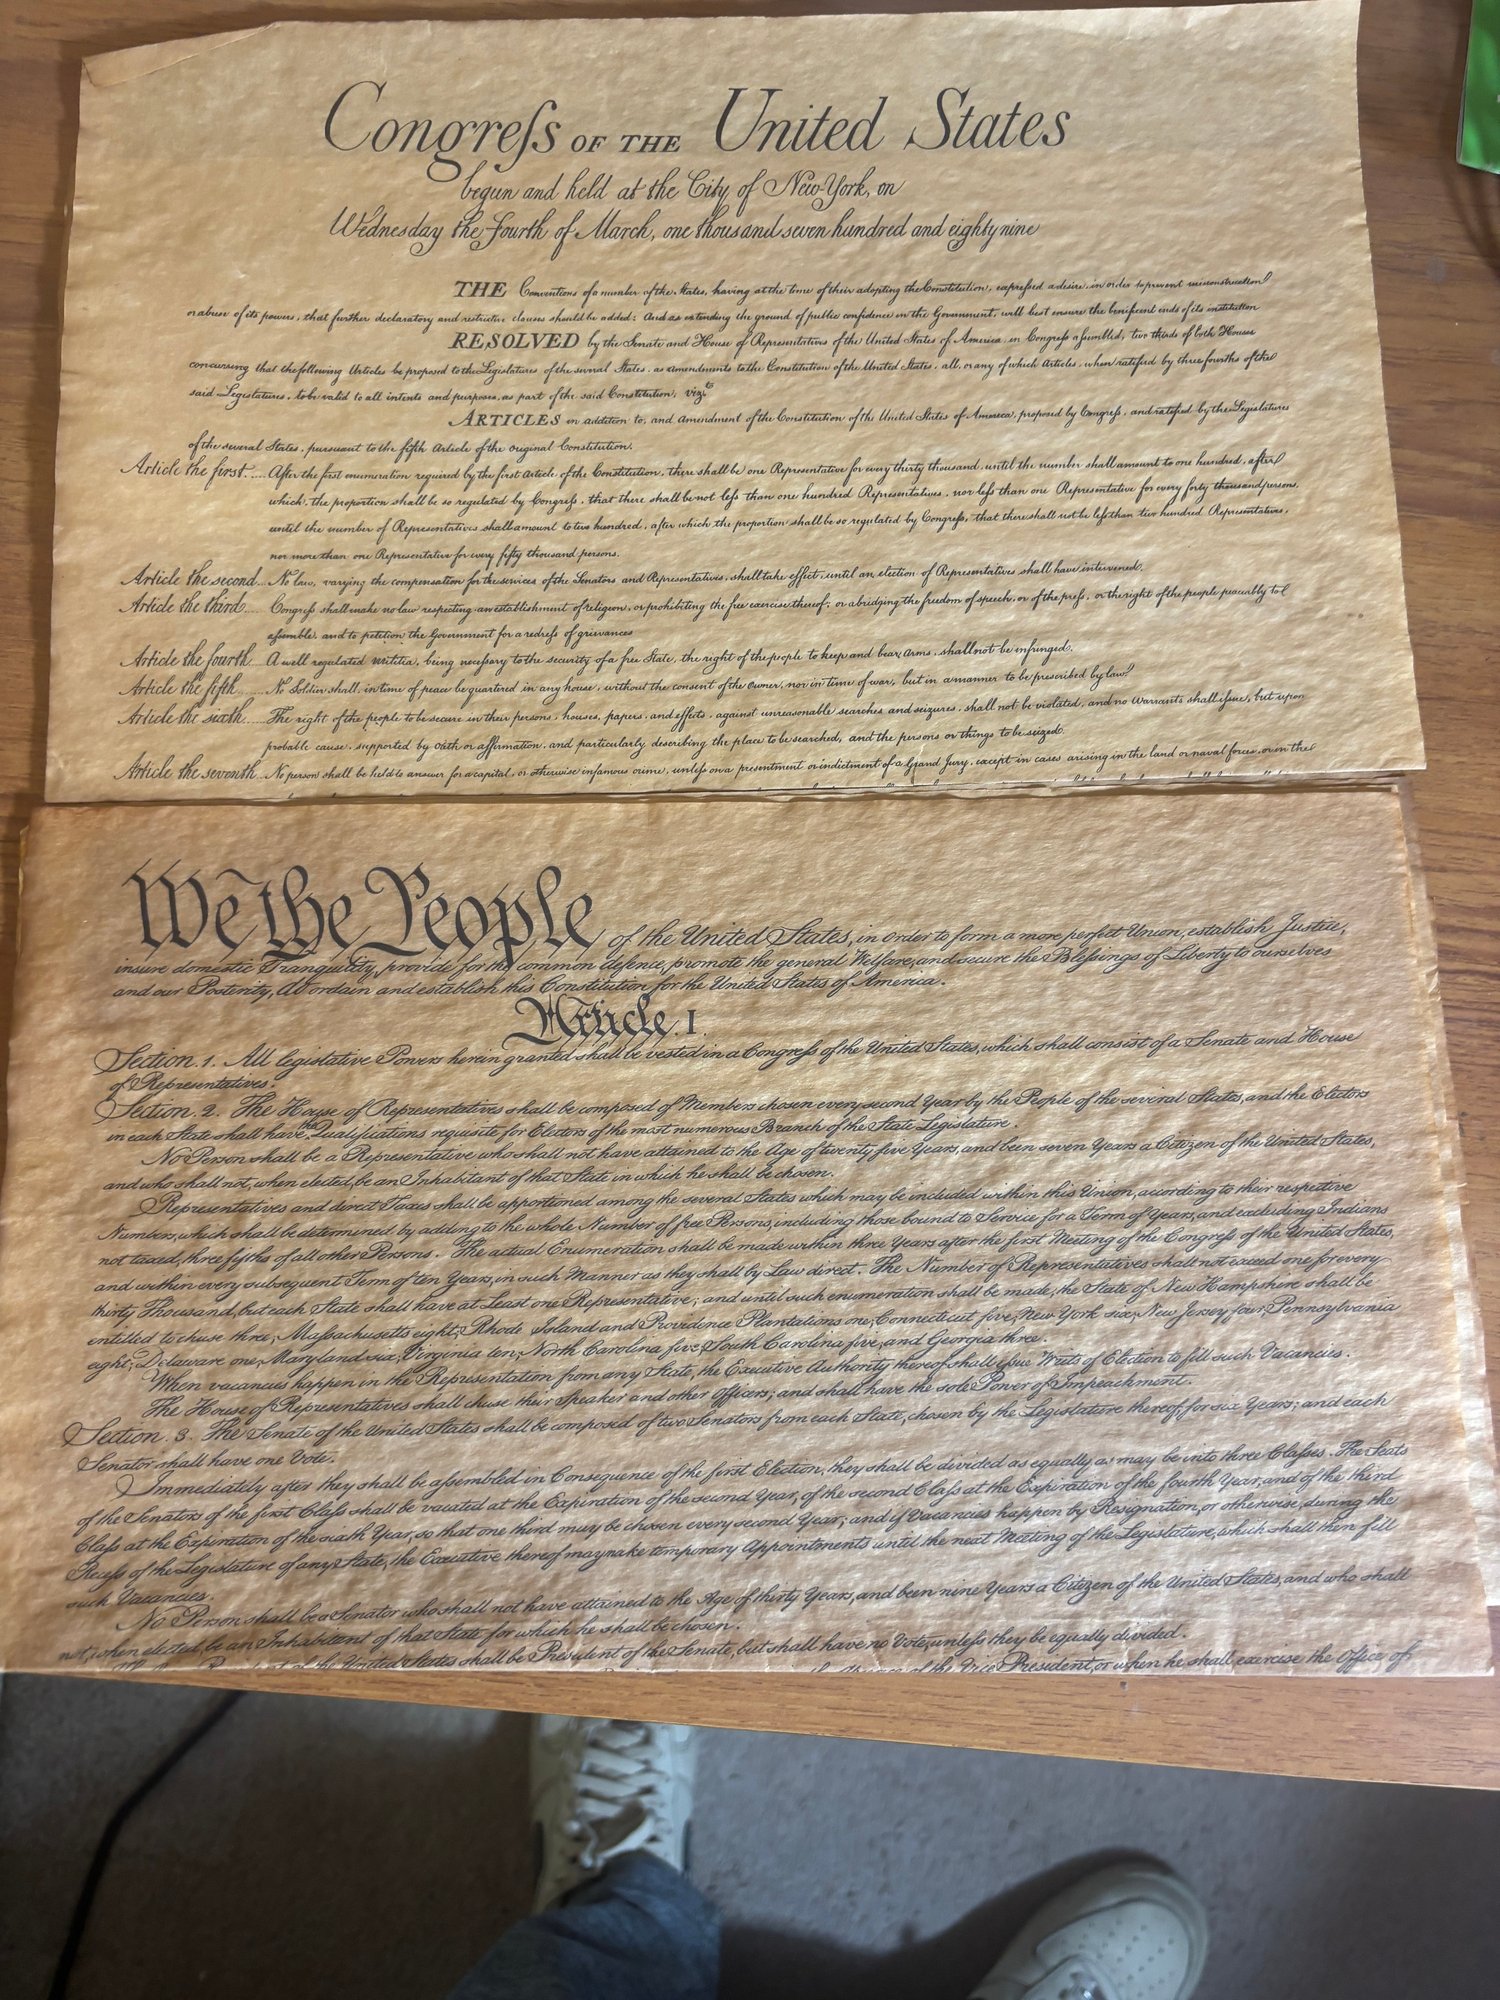 Congreſs OF THE United States
begun and held at the City of New-York, on
Wednesday the Fourth of March, one thousand seven hundred and eighty nine
THE Conventions of a number of the States, having at the time of their adopting the Constitution, expressed a desire, in order to prevent misconstruction
or abuse of its powers, that further declaratory and restrictive clauses should be added: And as extending the ground of public confidence in the Government, will best ensure the beneficent ends of its institution
RESOLVED by the Senate and House of Representatives of the United States of America, in Congreſs aſsembled, two thirds of both Houses
concurring that the following Articles be proposed to the Legislatures of the several States, as amendments to the Constitution of the United States, all, or any of which Articles, when ratified by three fourths of the
said Legislatures, to be valid to all intents and purposes, as part of the said Constitution; vizt
ARTICLES in addition to, and Amendment of the Constitution of the United States of America, proposed by Congreſs, and ratified by the Legislatures
of the several States, pursuant to the fifth Article of the original Constitution.
Article the first..... After the first enumeration required by the first Article of the Constitution, there shall be one Representative for every thirty thousand, until the number shall amount to one hundred, after
which, the proportion shall be so regulated by Congreſs, that there shall be not leſs than one hundred Representatives, nor leſs than one Representative for every forty thousand persons,
until the number of Representatives shall amount to two hundred, after which the proportion shall be so regulated by Congreſs, that there shall not be leſs than two hundred Representatives,
nor more than one Representative for every fifty thousand persons.
Article the second... No law, varying the compensation for the services of the Senators and Representatives, shall take effect, until an election of Representatives shall have intervened.
Article the third..... Congreſs shall make no law respecting an establishment of religion, or prohibiting the free exercise thereof; or abridging the freedom of speech, or of the preſs, or the right of the people peaceably to
aſsemble, and to petition the Government for a redreſs of grievances
Article the fourth... A well regulated militia, being neceſsary to the security of a free State, the right of the people to keep and bear arms, shall not be infringed.
Article the fifth..... No Soldier shall, in time of peace be quartered in any house, without the consent of the owner, nor in time of war, but in a manner to be prescribed by law.
Article the sixth..... The right of the people to be secure in their persons, houses, papers, and effects, against unreasonable searches and seizures, shall not be violated, and no warrants shall iſsue, but upon
probable cause, supported by oath or affirmation, and particularly describing the place to be searched, and the persons or things to be seized.
Article the seventh... No person shall be held to answer for a capital, or otherwise infamous crime, unleſs on a presentment or indictment of a Grand Jury, except in cases arising in the land or naval forces, or in the
We the People of the United States, in order to form a more perfect Union, establish Justice,
insure domestic Tranquility, provide for the common defence, promote the general Welfare, and secure the Bleſsings of Liberty to ourselves
and our Posterity, do ordain and establish this Constitution for the United States of America.
Article. I.
Section. 1. All legislative Powers herein granted shall be vested in a Congreſs of the United States, which shall consist of a Senate and House
of Representatives.
Section. 2. The House of Representatives shall be composed of Members chosen every second Year by the People of the several States, and the Electors
in each State shall have the Qualifications requisite for Electors of the most numerous Branch of the State Legislature.
No Person shall be a Representative who shall not have attained to the Age of twenty five Years, and been seven Years a Citizen of the United States,
and who shall not, when elected, be an Inhabitant of that State in which he shall be chosen.
Representatives and direct Taxes shall be apportioned among the several States which may be included within this Union, according to their respective
Numbers, which shall be determined by adding to the whole Number of free Persons, including those bound to Service for a Term of Years, and excluding Indians
not taxed, three fifths of all other Persons. The actual Enumeration shall be made within three Years after the first Meeting of the Congreſs of the United States,
and within every subsequent Term of ten Years, in such Manner as they shall by Law direct. The Number of Representatives shall not exceed one for every
thirty Thousand, but each State shall have at Least one Representative; and until such enumeration shall be made, the State of New Hampshire shall be
entitled to chuse three, Maſsachusetts eight, Rhode Island and Providence Plantations one, Connecticut five, New York six, New Jersey four, Pennsylvania
eight, Delaware one, Maryland six, Virginia ten, North Carolina five, South Carolina five, and Georgia three.
When vacancies happen in the Representation from any State, the Executive Authority thereof shall iſsue Writs of Election to fill such Vacancies.
The House of Representatives shall chuse their Speaker and other Officers; and shall have the sole Power of Impeachment.
Section. 3. The Senate of the United States shall be composed of two Senators from each State, chosen by the Legislature thereof, for six Years; and each
Senator shall have one Vote.
Immediately after they shall be aſsembled in Consequence of the first Election, they shall be divided as equally as may be into three Claſses. The Seats
of the Senators of the first Claſs shall be vacated at the Expiration of the second Year, of the second Claſs at the Expiration of the fourth Year, and of the third
Claſs at the Expiration of the sixth Year, so that one third may be chosen every second Year; and if Vacancies happen by Resignation, or otherwise, during the
Receſs of the Legislature of any State, the Executive thereof may make temporary Appointments until the next Meeting of the Legislature, which shall then fill
such Vacancies.
No Person shall be a Senator who shall not have attained to the Age of thirty Years, and been nine Years a Citizen of the United States, and who shall
not, when elected, be an Inhabitant of that State for which he shall be chosen.
President of the United States shall be President of the Senate, but shall have no Vote, unleſs they be equally divided.
of the Vice President, or when he shall exercise the Office of